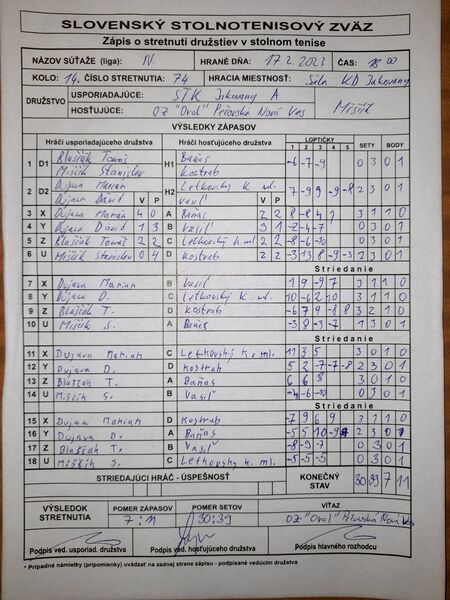 SLOVENSKÝ STOLNOTENISOVÝ ZVÄZ
Zápis o stretnutí družstiev v stolnom tenise
NÁZOV SÚŤAŽE (liga): IV HRANÉ DŇA: 17.2.2023 ČAS: 18 00
KOLO: 14. ČÍSLO STRETNUTIA: 74 HRACIA MIESTNOSŤ: Sála KD Jakovany
DRUŽSTVO USPORIADAJÚCE: STK Jakovany A
HOSŤUJÚCE: OZ "Oval" Pečovská Nová Ves Miščík
VÝSLEDKY ZÁPASOV
Hráči usporiadajúceho družstva Hráči hosťujúceho družstva LOPTIČKY SETY BODY
1 2 3 4 5
1 D1 Blaščák Tomáš H1 Baňas -6 -7 -9 0 3 0 1
Miščík Stanislav Kostrab
2 D2 Dujava Marian H2 Letkovský K. ml. -7 -9 9 -9 -8 2 3 0 1
Dujava Dávid V P Vasiľ V P
3 X Dujava Marián 4 0 A Baňas 2 2 8 -8 4 1 3 1 1 0
4 Y Dujava David 1 3 B Vasiľ 3 1 -2 -4 -7 0 3 0 1
5 Z Blaščák Tomáš 2 2 C Letkovský K. ml. 2 2 -8 -6 -10 0 3 0 1
6 U Miščík Stanislav 0 4 D Kostrab 2 2 -3 13 8 -9 -3 2 3 0 1
Striedanie
7 X Dujava Marian B Vasiľ 1 9 -9 7 3 1 1 0
8 Y Dujava D. C Letkovský K. ml. 10 -6 2 10 3 1 1 0
9 Z Blaščák T. D Kostrab -6 7 9 -8 8 3 2 1 0
10 U Miščík S. A Baňas -3 8 -3 -7 1 3 0 1
Striedanie
11 X Dujava Marian C Letkovský K. ml. 11 3 5 3 0 1 0
12 Y Dujava D. D Kostrab 5 2 -7 -7 -8 2 3 0 1
13 Z Blaščák T. A Baňas 6 6 8 3 0 1 0
14 U Miščík S. B Vasiľ -4 -6 -10 0 3 0 1
Striedanie
15 X Dujava Marian D Kostrab 7 9 6 9 3 1 1 0
16 Y Dujava D. A Baňas -5 5 10 -9 2 3 0 1
17 Z Blaščák T. B Vasiľ -8 -9 -7 0 3 0 1
18 U Miščík S. C Letkovský K. ml. -5 -5 -5 0 3 0 1
STRIEDAJÚCI HRÁČ - ÚSPEŠNOSŤ KONEČNÝ STAV 30 39 7 11
VÝSLEDOK STRETNUTIA POMER ZÁPASOV POMER SETOV VÍŤAZ
7 : 11 30:39 OZ "Oval" Pečovská Nová Ves
Podpis ved. usporiad. družstva Podpis ved. hosťujúceho družstva Podpis hlavného rozhodcu
* Prípadné námietky (pripomienky) uvádzať na zadnej strane zápisu - podpísané vedúcim družstva